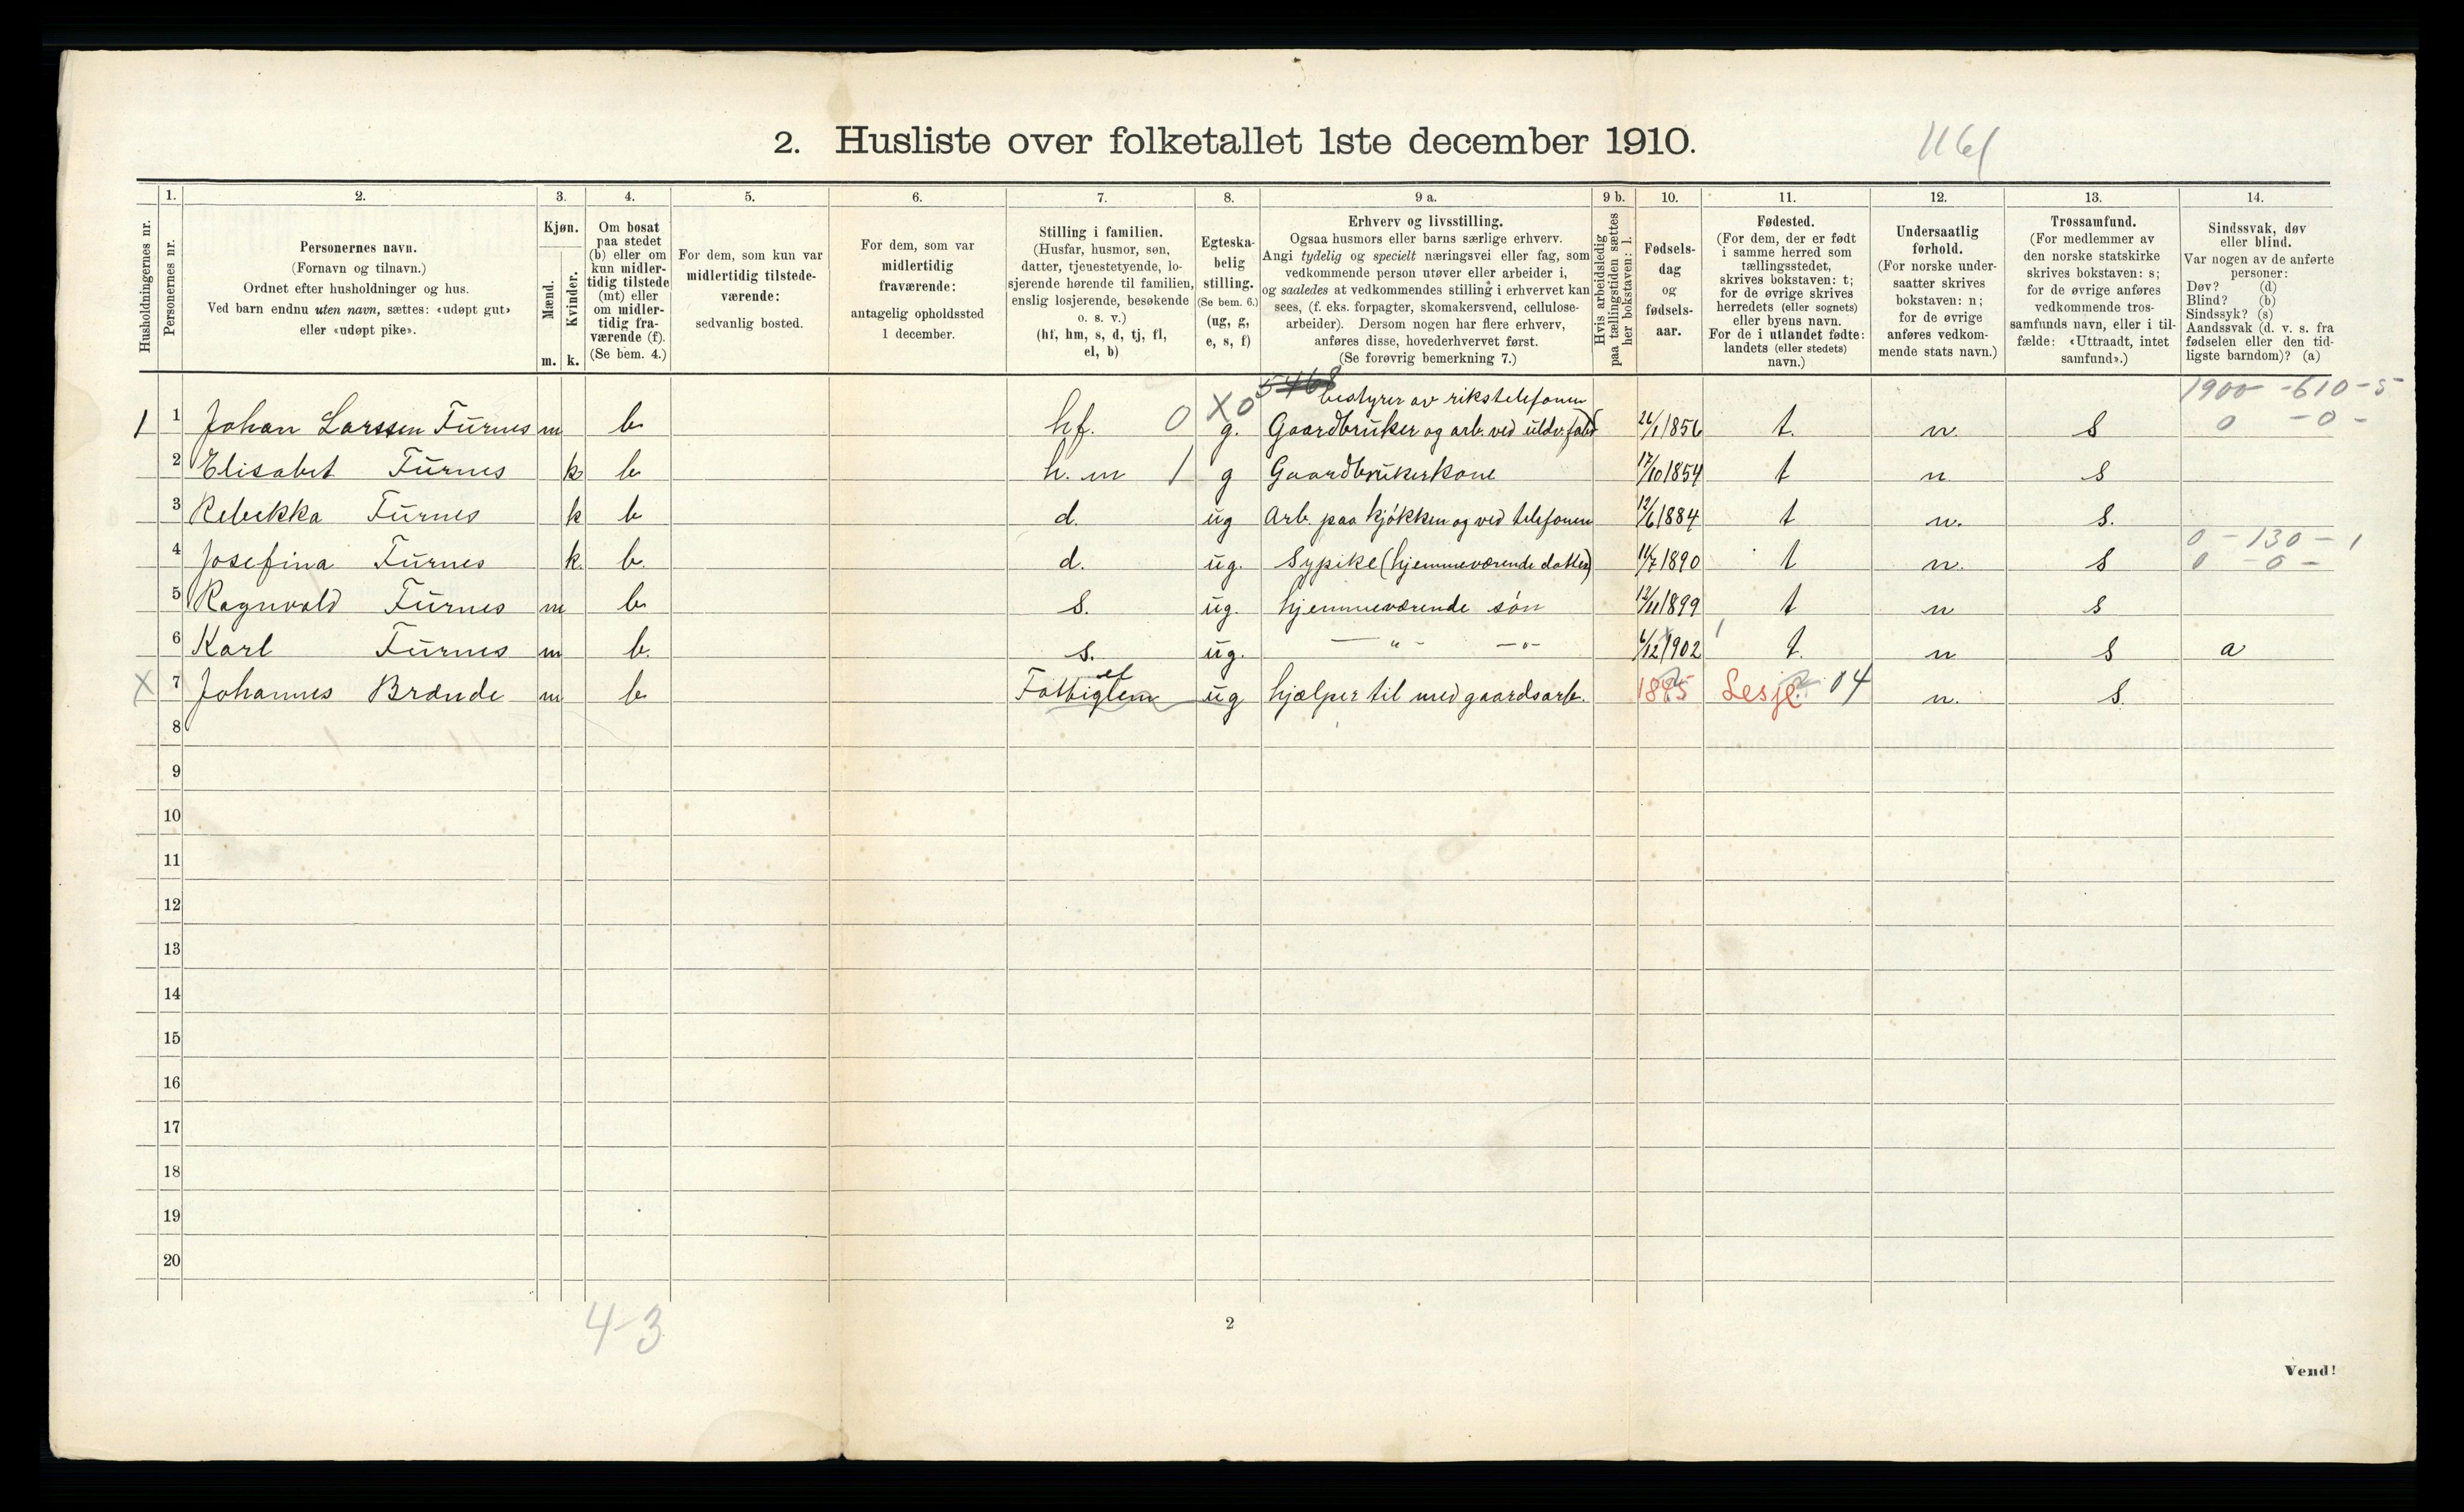 2. Husliste over folketallet 1ste december 1910.
1161
Husholdningernes nr.
1.
Personernes nr.
2.
Personernes navn.
(Fornavn og tilnavn.)
Ordnet efter husholdninger og hus.
Ved barn endnu uten navn, sættes: «udøpt gut»
eller «udøpt pike».
3.
Kjøn.
Mænd.
Kvinder.
m. k.
4.
Om bosat
paa stedet
(b) eller om
kun midler-
tidig tilstede
(mt) eller
om midler-
tidig fra-
værende (f).
(Se bem. 4.)
5.
For dem, som kun var
midlertidig tilstede-
værende:
sedvanlig bosted.
6.
For dem, som var
midlertidig
fraværende:
antagelig opholdssted
1 december.
7.
Stilling i familien.
(Husfar, husmor, søn,
datter, tjenestetyende, lo-
sjerende hørende til familien,
enslig losjerende, besøkende
o. s. v.)
(hf, hm, s, d, tj, fl,
el, b)
8.
Egteska-
belig
stilling.
(Se bem. 6.)
(ug, g,
e, s, f)
9 a.
Erhverv og livsstilling.
Ogsaa husmors eller barns særlige erhverv.
Angi tydelig og specielt næringsvei eller fag, som
vedkommende person utøver eller arbeider i,
og saaledes at vedkommendes stilling i erhvervet kan
sees, (f. eks. forpagter, skomakersvend, cellulose-
arbeider). Dersom nogen har flere erhverv,
anføres disse, hovederhvervet først.
(Se forøvrig bemerkning 7.)
9 b.
Hvis arbeidsledig
paa tællingstiden sættes
her bokstaven: l.
10.
Fødsels-
dag
og
fødsels-
aar.
11.
Fødested.
(For dem, der er født
i samme herred som
tællingsstedet,
skrives bokstaven: t;
for de øvrige skrives
herredets (eller sognets)
eller byens navn.
For de i utlandet fødte:
landets (eller stedets)
navn.)
12.
Undersaatlig
forhold.
(For norske under-
saatter skrives
bokstaven: n;
for de øvrige
anføres vedkom-
mende stats navn.)
13.
Trossamfund.
(For medlemmer av
den norske statskirke
skrives bokstaven: s;
for de øvrige anføres
vedkommende tros-
samfunds navn, eller i til-
fælde: «Uttraadt, intet
samfund».)
14.
Sindssvak, døv
eller blind.
Var nogen av de anførte
personer:
Døv? (d)
Blind? (b)
Sindssyk? (s)
Aandssvak (d. v. s. fra
fødselen eller den tid-
ligste barndom)? (a)
bestyrer av rikstelefonen 1900 - 610 - 5
1 1 Johan Larssen Furnes m b hf. 0 X 0 g. Gaardbruker og arb. ved uldv.fabr 26/1 1856 t. n. s 0 - 0 -
2 Elisabet Furnes k b h. m 1 g Gaardbrukerkone 17/10 1854 t n s
3 Rebekka Furnes k b d. ug Arb. paa kjøkken og ved telefonen 12/6 1884 t n. s.
0 - 130 - 1
4 Josefina Furnes k. b. d. ug. Sypike (hjemmeværende datter) 11/7 1890 t n. s 0 - 0 -
5 Ragnvald Furnes m b s. ug. hjemmeværende søn 12/11 1899 t n s
6 Karl Furnes m b. s. ug. — " — — " — 6/12 1902 t. n s a
X 7 Johannes Brænde m b Fattiglem el ug hjælper til med gaardsarb. 1885 Lesje 04 n. s.
8
9
10
11
12
13
14
15
16
17
18
19
20
4-3
2
Vend!